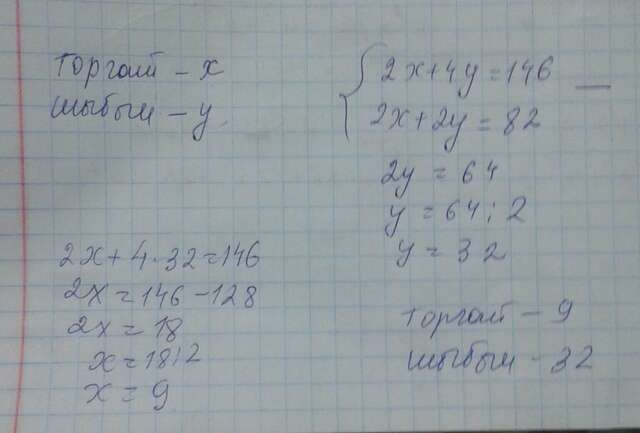 Торғай – x
Шыбын – y
2x+4y=146
2x+2y=82
2y=64
y=64:2
y=32
2x+4·32=146
2x=146-128
2x=18
x=18:2
x=9
Торғай – 9
Шыбын – 32